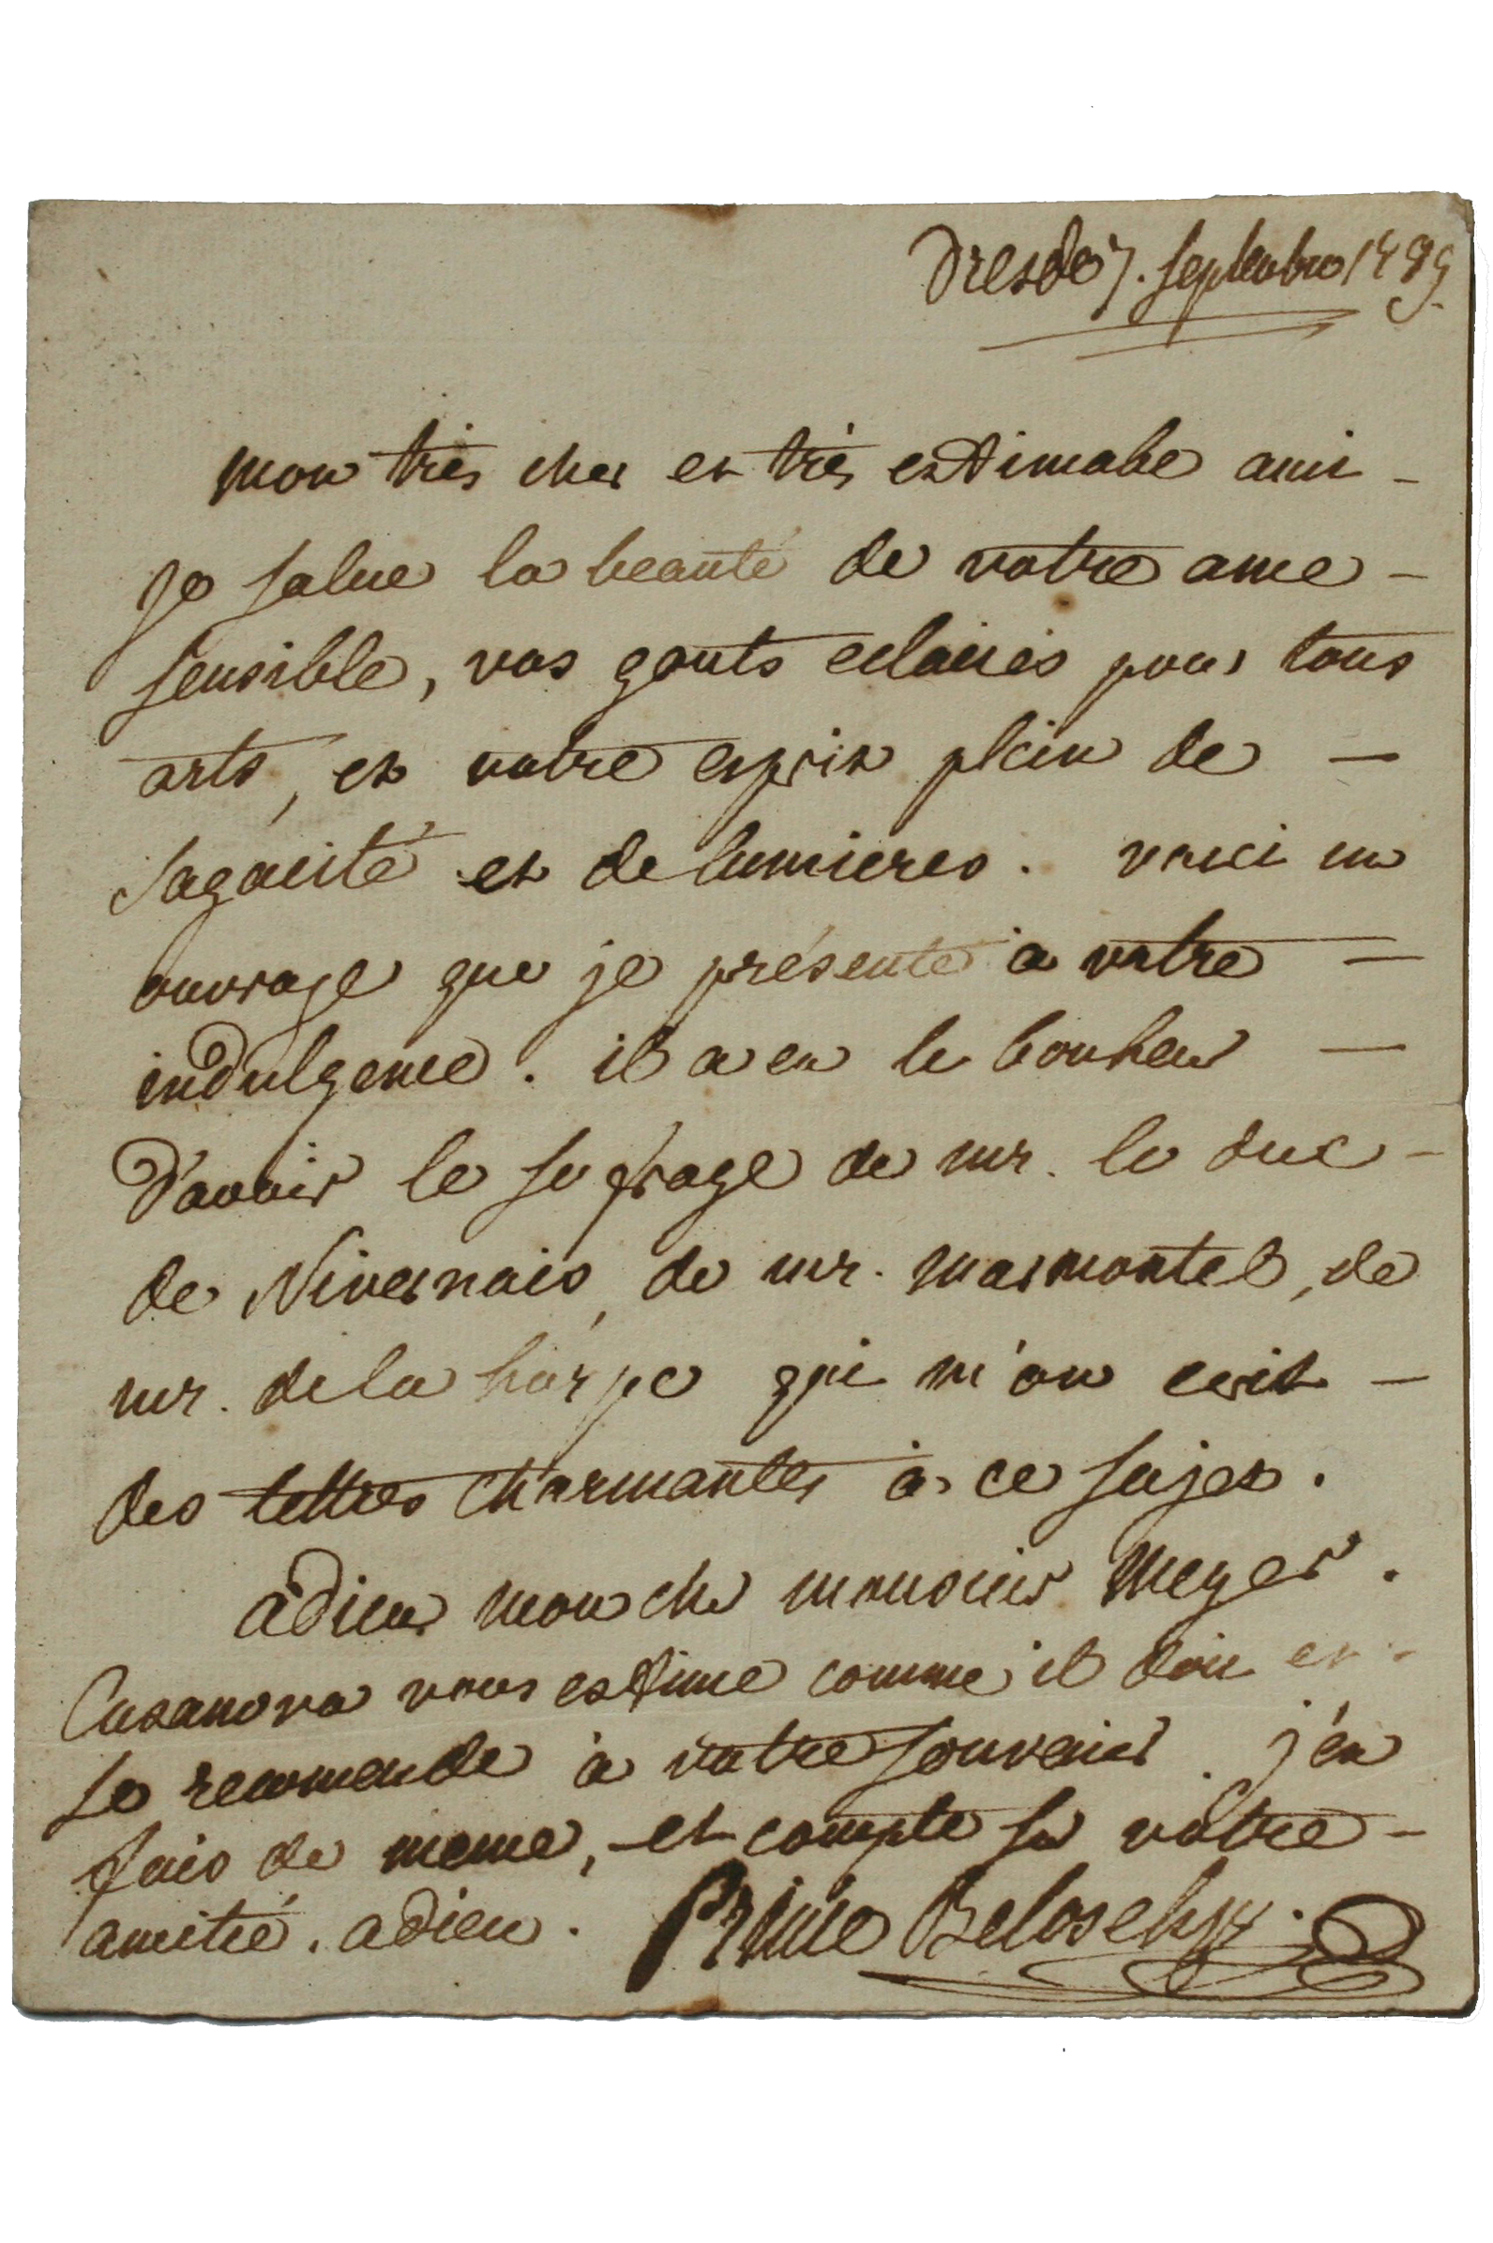 Dresde 7. Septembre 1789.
mon très cher et très estimable ami -
je salue la beauté de votre ame -
sensible, vos gouts eclairés pour tous
arts, et votre esprit plein de -
sagacité et de lumieres. voici un
ouvrage que je présente à votre -
indulgence. il a eu le bonheur -
d'avoir le sufrage de mr. le duc -
de Nivernais, de mr. marmontel, de
mr. de la harpe qui m'on ecrit -
des lettres charmantes à ce sujet.
adieu mon cher monsieur Meyer.
Casanova vous estime comme il doit et -
se recomende à votre souvenir. j'en
fais de meme, et compte sur votre -
amitié. adieu. Prince Beloselsky.